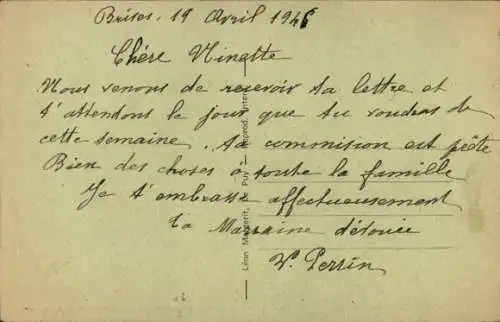 Brives, 19 Avril 1946
Chère Ninette
Nous venons de recevoir ta lettre et
t'attendons le jour que tu voudras de
cette semaine. ta commision est prête
Bien des choses à toute la famille
Je t'embrasse affectueusement
ta Marraine dévouée
V. Perrin
Léon Margerit, Le Puy - Reprod. Inter.